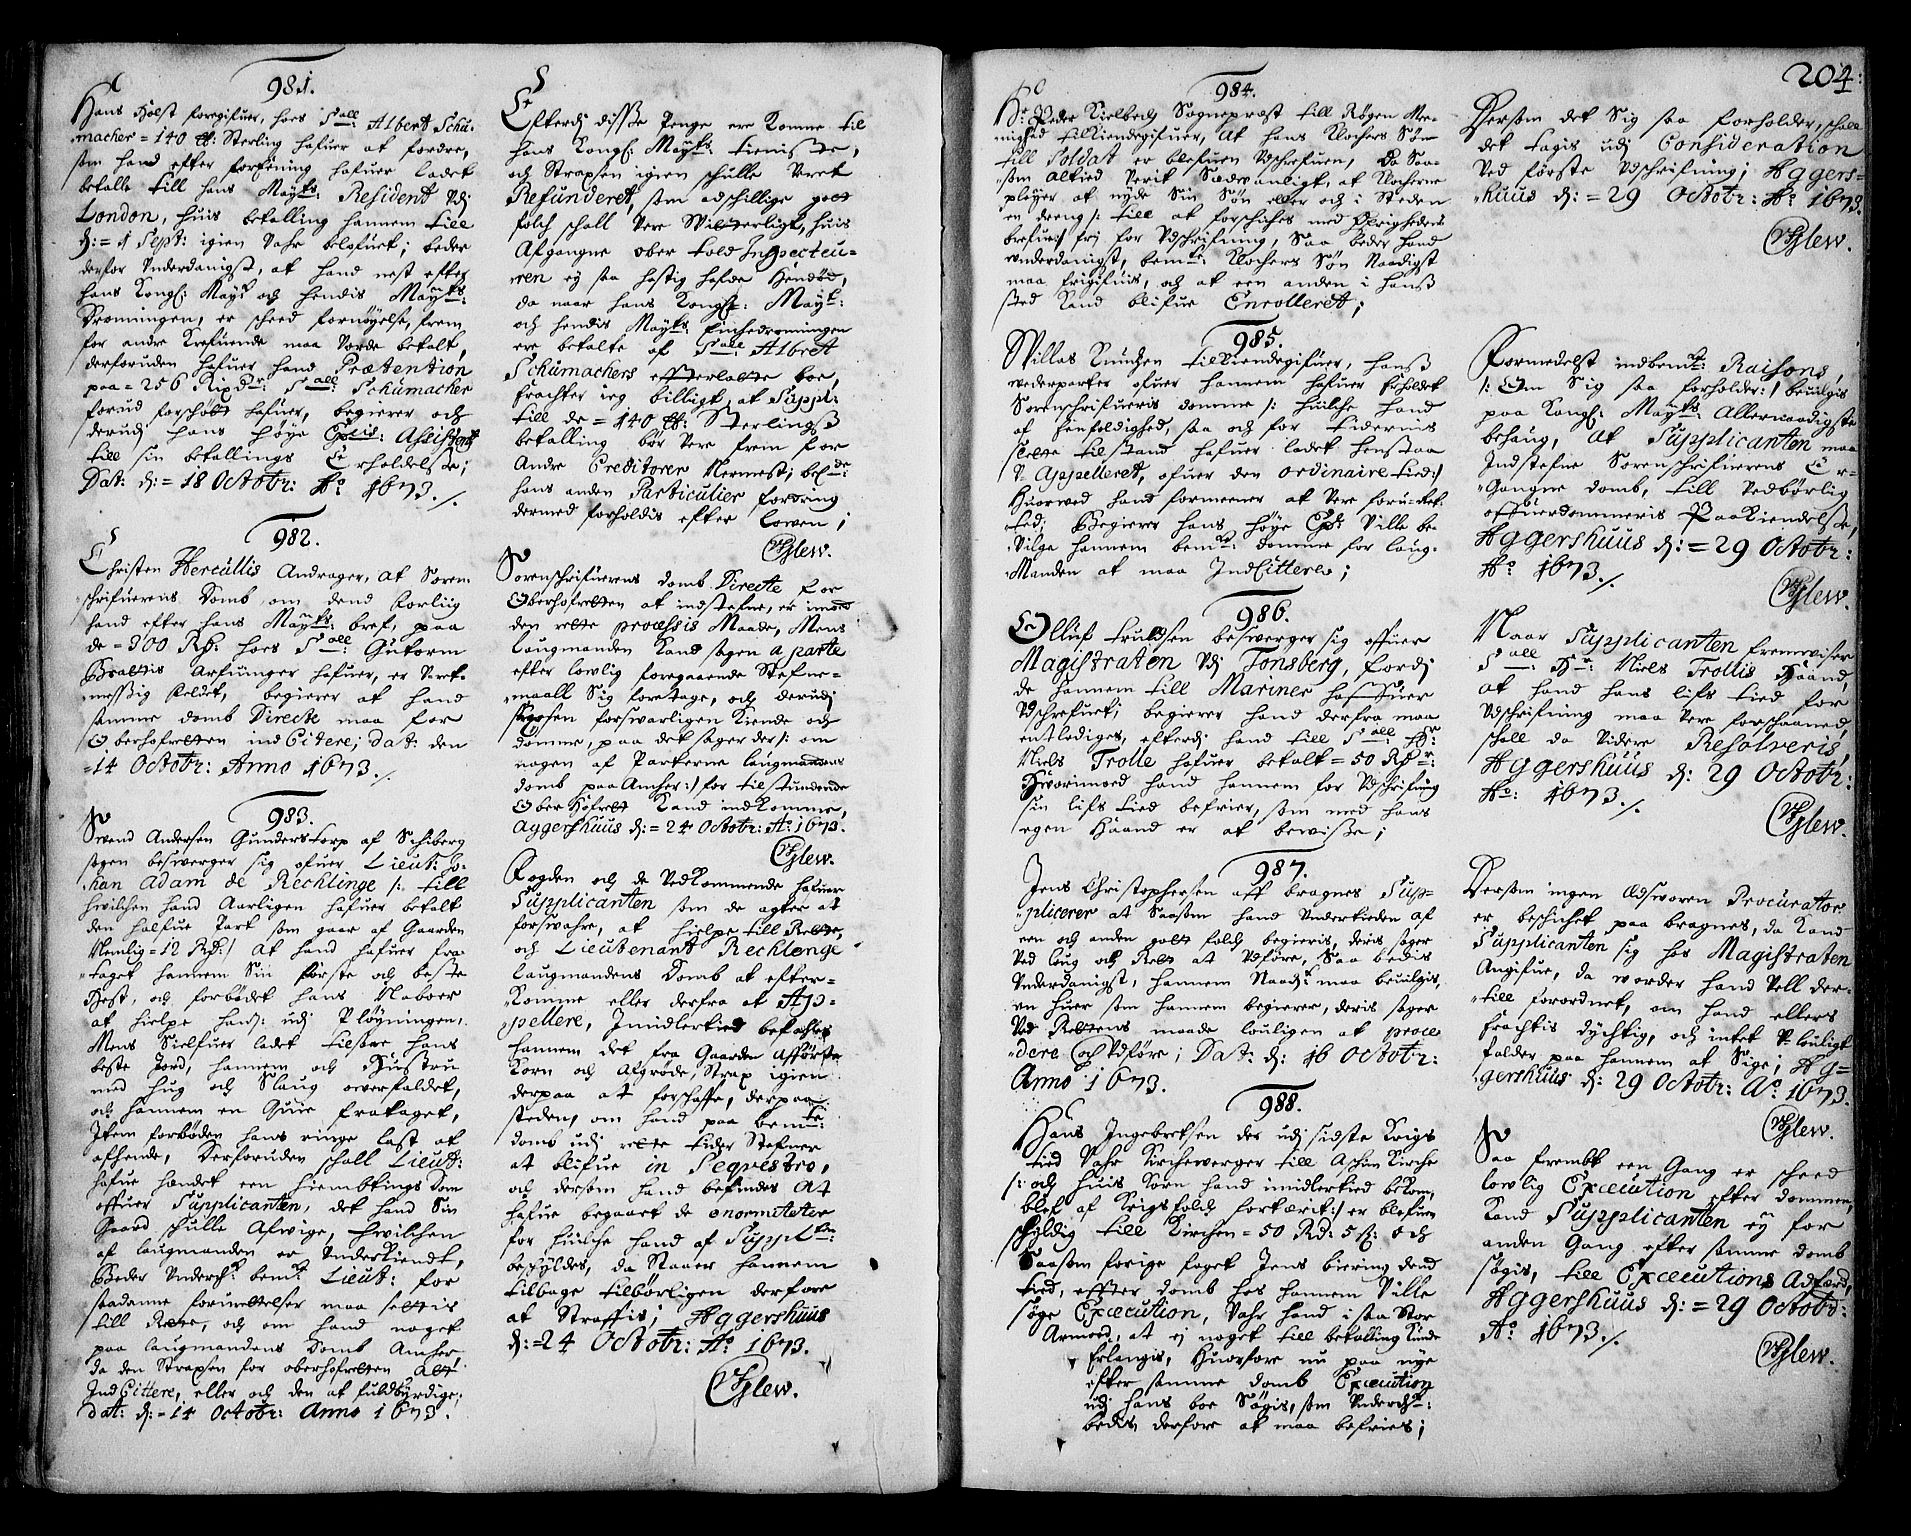 981.
Hans Holst foregifuer, hoes Sall: Albert Schu-
macher = 140 ℔: Sterling hafuer at fordre,
som hand efter forskning hafuer ladet
betalle till hans Mayts: Resident udj
London, huis betalling hannem till
d: = 1 Sept: igien vahr belofuet; beder
derfor underdanigst, at hand nest efter
hans Kongl: Mayt och hendis Mayts:
Dronningen, er scheed fornøyelse, frem
for andre Krefuende maa vorde betalt,
derforuden hafuer hand Prætention
paa = 256 Rixdr: Sall: Schumacher
forud forschøtt hafuer, begierer och
derudj hans høye Exts: Assistents
till sin betallings Erholdelse;
Dat: d: = 18 Octobr: Ao 1673./.
982.
Christen Hercullis Andrager, at Soren-
schrifuerens Domb, om dend forliig
hand efter hans Mayts: bref, paa
de = 300 Rd: hoes Sall: Gutorm
arfuinger hafuer, er urett-
messig feldet, begierer at hand
samme domb Directe maa for
Oberhofretten ind Citere; dat: den
14 Octobr: Anno 1673./.
983.
Svend Andersen Gunderstorp af Schiberg
sogen beswerger sig ofuer Lieut: Jo-
han Adam de Rechlinge /: till
hvilchen hand Aarligen hafuer betalt
den halfue Part som gaar af Gaarden
Nemlig = 12 Rd:/ at hand hafuer fra-
taget hannem Sin første och beste
Hest, och forbødet hans Naboer
at hielpe ham: udj Pløyningen,
Mens Sielfuer ladet tilsaae hans
beste Jord, hannem och Hustru
med hug och Slaug ofuerfaldet,
och hannem en Quie frataget,
Item forbøden hans ringe last at
afhende, Derforuden schall Lieut:
hafue hendet een hiembtings Dom
offuer Supplicanten, det hand Sin
Gaard schulle Afvige, huilchen
af laugmanden er underkiendt,
Beder Underdt. bemt: Lieut: for
saadanne forurettelser maa settis
till Rette, och om hand noget
paa laugmandens Domb Ancher
da den Strax for oberhofretten at
Ind Cittere, eller och den at fuldbyrdige;
dat: d: = 14 Octobr: Anno 1673.
Efterdj disse Penge ere Komne till
hans Kongl: Mayts: tienisste,
och Straxen igien schulle veret
Refunderet, som adschillige gott
folch schall vere vitterligt, huis
Afgangne ober told Inspecteu-
ren ej saa hastig hafde hendød,
da naar hans Kongl: Mayt:
och hendis Mayts Einhedroningen
ere betalte af Sall: Albret
Schumachers efterlatte boe,
fragter ieg billigt, at Suppl:
till de = 140 ℔: Sterlings
betalling bør vere frem for
Andre Creditorer Nermest; belde:
hans anden Particulier fordring
dermed forholdis efter lowen;
Glew.
Sorenschrifuerens domb Directe for
Oberhofretten at indstefne, er imod
den rette processis Maade, Mens
Laugmanden Kand sagen a parte
efter lowlig foregaaende Stefne-
maall Sig foretage, och derudj
forswarligen Kiende och
domme, paa det sagen der /: om
nogen af Parterne laugmandens
domb paa Ancher:/ for tilstundende
Ober Hofrett Kand indkomme,
Aggershuus d: = 24 Octobr: Ao: 1673.
Glew.
Fogden och de Vedkommende hafuer
Supplicanten som de agter at
forswahre, at hielpe till Rette,
och Lieutenant Rechlenge
Laugmandens Domb at efter-
komme eller derfra at Ap-
pellere, Imidlertied befahles
hannem det fra Gaarden Afførte
Korn och Afgrøde Strax igien
derpaa at forschaffe, derpaa
steden, om hand paa bemte:
domb udj rette tider Stefner
at blifue in Seqvestro,
och dersom hand befindes At
hafue begaaet de enormiteter
for huilche hand af Supplten:
beschyldes, da Staaer hannem
tilbage tilbørligen derfore
at Straffis; Aggershuus
d: = 24 Octobr: Ao 1673.
Glew.
204:
984.
Hr: Peder Kielbech Sognepræst till Røgen me-
nighed tilkiendegifuer, At hans Klochers Søn
till Soldat er blefuen udschrefuen, Da Saa-
som altied verit Sædvanligt, at Klocherne
pleyer at nyde Sin Søn eller och i Steden
en dreng /: till at forschiches med Øfrigheds
brefue:/ frj for udschrifning, Saa beder hand
underdanigst, bemte Klochers Søn Naadigst
maa frigifuis, och at een anden i hans
sted Kand blifue Enrolleret;
985.
Villas Knudsen tilkiendegifuer, hans
wederparter ofuer hannem hafuer Erholdet
Sorenschrifueris domme /: huilche hand
af Eenfoldighed, saa och for tidernis
slette tilstand hafuer ladet henstaa
u-Appelleret, ofuer den ordinaire tied:/
Huorved hand formeener at vere foru-ret-
ted; Begierer hans høye Exts ville be-
vilge hannem bemte: domme for laug-
Manden at maa Ind Cittere;
986.
Olluf Truldsen beswerger sig offuer
Magistraten udj Tonsberg, fordj
de hannem till Mariner haffuer
udschrefuet; begierer hand derfra maa
entlediges, efterdj hand till Sall: Hr
Niels Trolle hafuer betalt = 50 Rdr:
Huorimod hand hannem for udschrifning
sin lifs tied befrier, som med hans
egen Haand er at bewise;
987.
Jens Christophersen aff bragnes Sup-
plicerer at Saasom hand Undertieden af
een och anden gott folch begieris, deris sager
Ved laug och Rett at udføre, Saa bedis
Underdanigst, hannem Naadt. maa bevilgis,
en huer som hannem begierer, deris sager
Ved Rettens maade louligen at proce-
dere och udføre; Dat: d: 16 Octobr:
Anno 1673.
988.
Hans Ingebretsen der udj sidste Krigs
tied Vahr Kircheverger till Aschim Kirche
/: och huis Korn hand imidlertied bekom,
blef af Krigsfolch fortæret:/ er blefuen
schyldig till Kirchen = 50 Rd: 5 sk: och
Saasom forige foget Jens biering dend
tied, effter domb hos hannem ville
søge Execution, Vahr hand i saa stor
Armod, at ej noget till betalling Kunde
Erlangis, Huorfore nu paa nye
efter samme domb Execution
udj hans boe Søgis, som Underdt:
bedis derfore at maa befries;
Dersom det Sig saa forholder, schall
det tagis udj Consideration
Ved første udschrifning; Aggers-
huus d: = 29 Octobr: Ao 1673.
Glew.
Formedelst indbemte: Raisons,
/: Om Sig saa forholder:/ bevilgis
paa Kongl: Mayts Allernaadigste
behaug, at Supplicanten maa
Indstefne Sorenschrifuerens Er-
Gangne domb, till vedbørlig
offuerdommeris Paakiendelse,
Aggershuus d: = 29 Octobr:
Ao 1673./.
Glew.
Naar Supplicanten fremviser
Sall: Hr: Niels Trollis Haand,
at hand hans lifs tied for
udschrifning maa vere forschaaned,
schall da videre Resolveris,
Aggershuus d: 29 Octobr:
Ao: 1673./.
Glew.
Dersom ingen Edsworen Procurator
er beschichet paa bragnes, da Kand
Supplicanten sig hos Magistraten
Angifue, da worder hand vell der-
till forordnet, om hand ellers
fragtis dychtig, och intet u-louligt
falder paa hannem at Sige; Ag-
gershuus d: 29 Octobr: Ao 1673.
Glew.
Saa frembt een Gang er scheed
lowlig Execution efter dommen,
Kand Supplicanten ej for
anden Gang efter samme domb
søgis, till Executions Adfærd,
Aggershuus d: = 29 Octobr:
Ao: 1673./.
Glew.